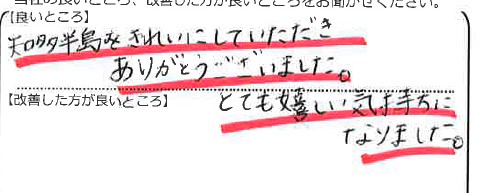 当社の良いところ、改善した方が良いところをお聞かせください。
【良いところ】
知多半島をきれいにしていただき
ありがとうございました。
【改善した方が良いところ】
とても嬉しい気持ちに
なりました。